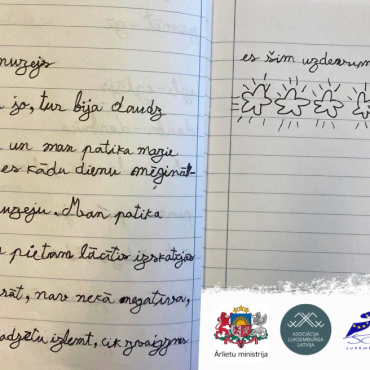 muzejs
jo, tur bija daudz
un man patika mazie
es kādu dienu mēģināt-
muzeju. Man patika
lācītis izskatījās
nav nekā negatīva,
izlemt, cik zvaigznes
es šim uzdevumam
Ārlietu ministrija
ASOCIĀCIJA
LUKSEMBURGA
LATVIJA